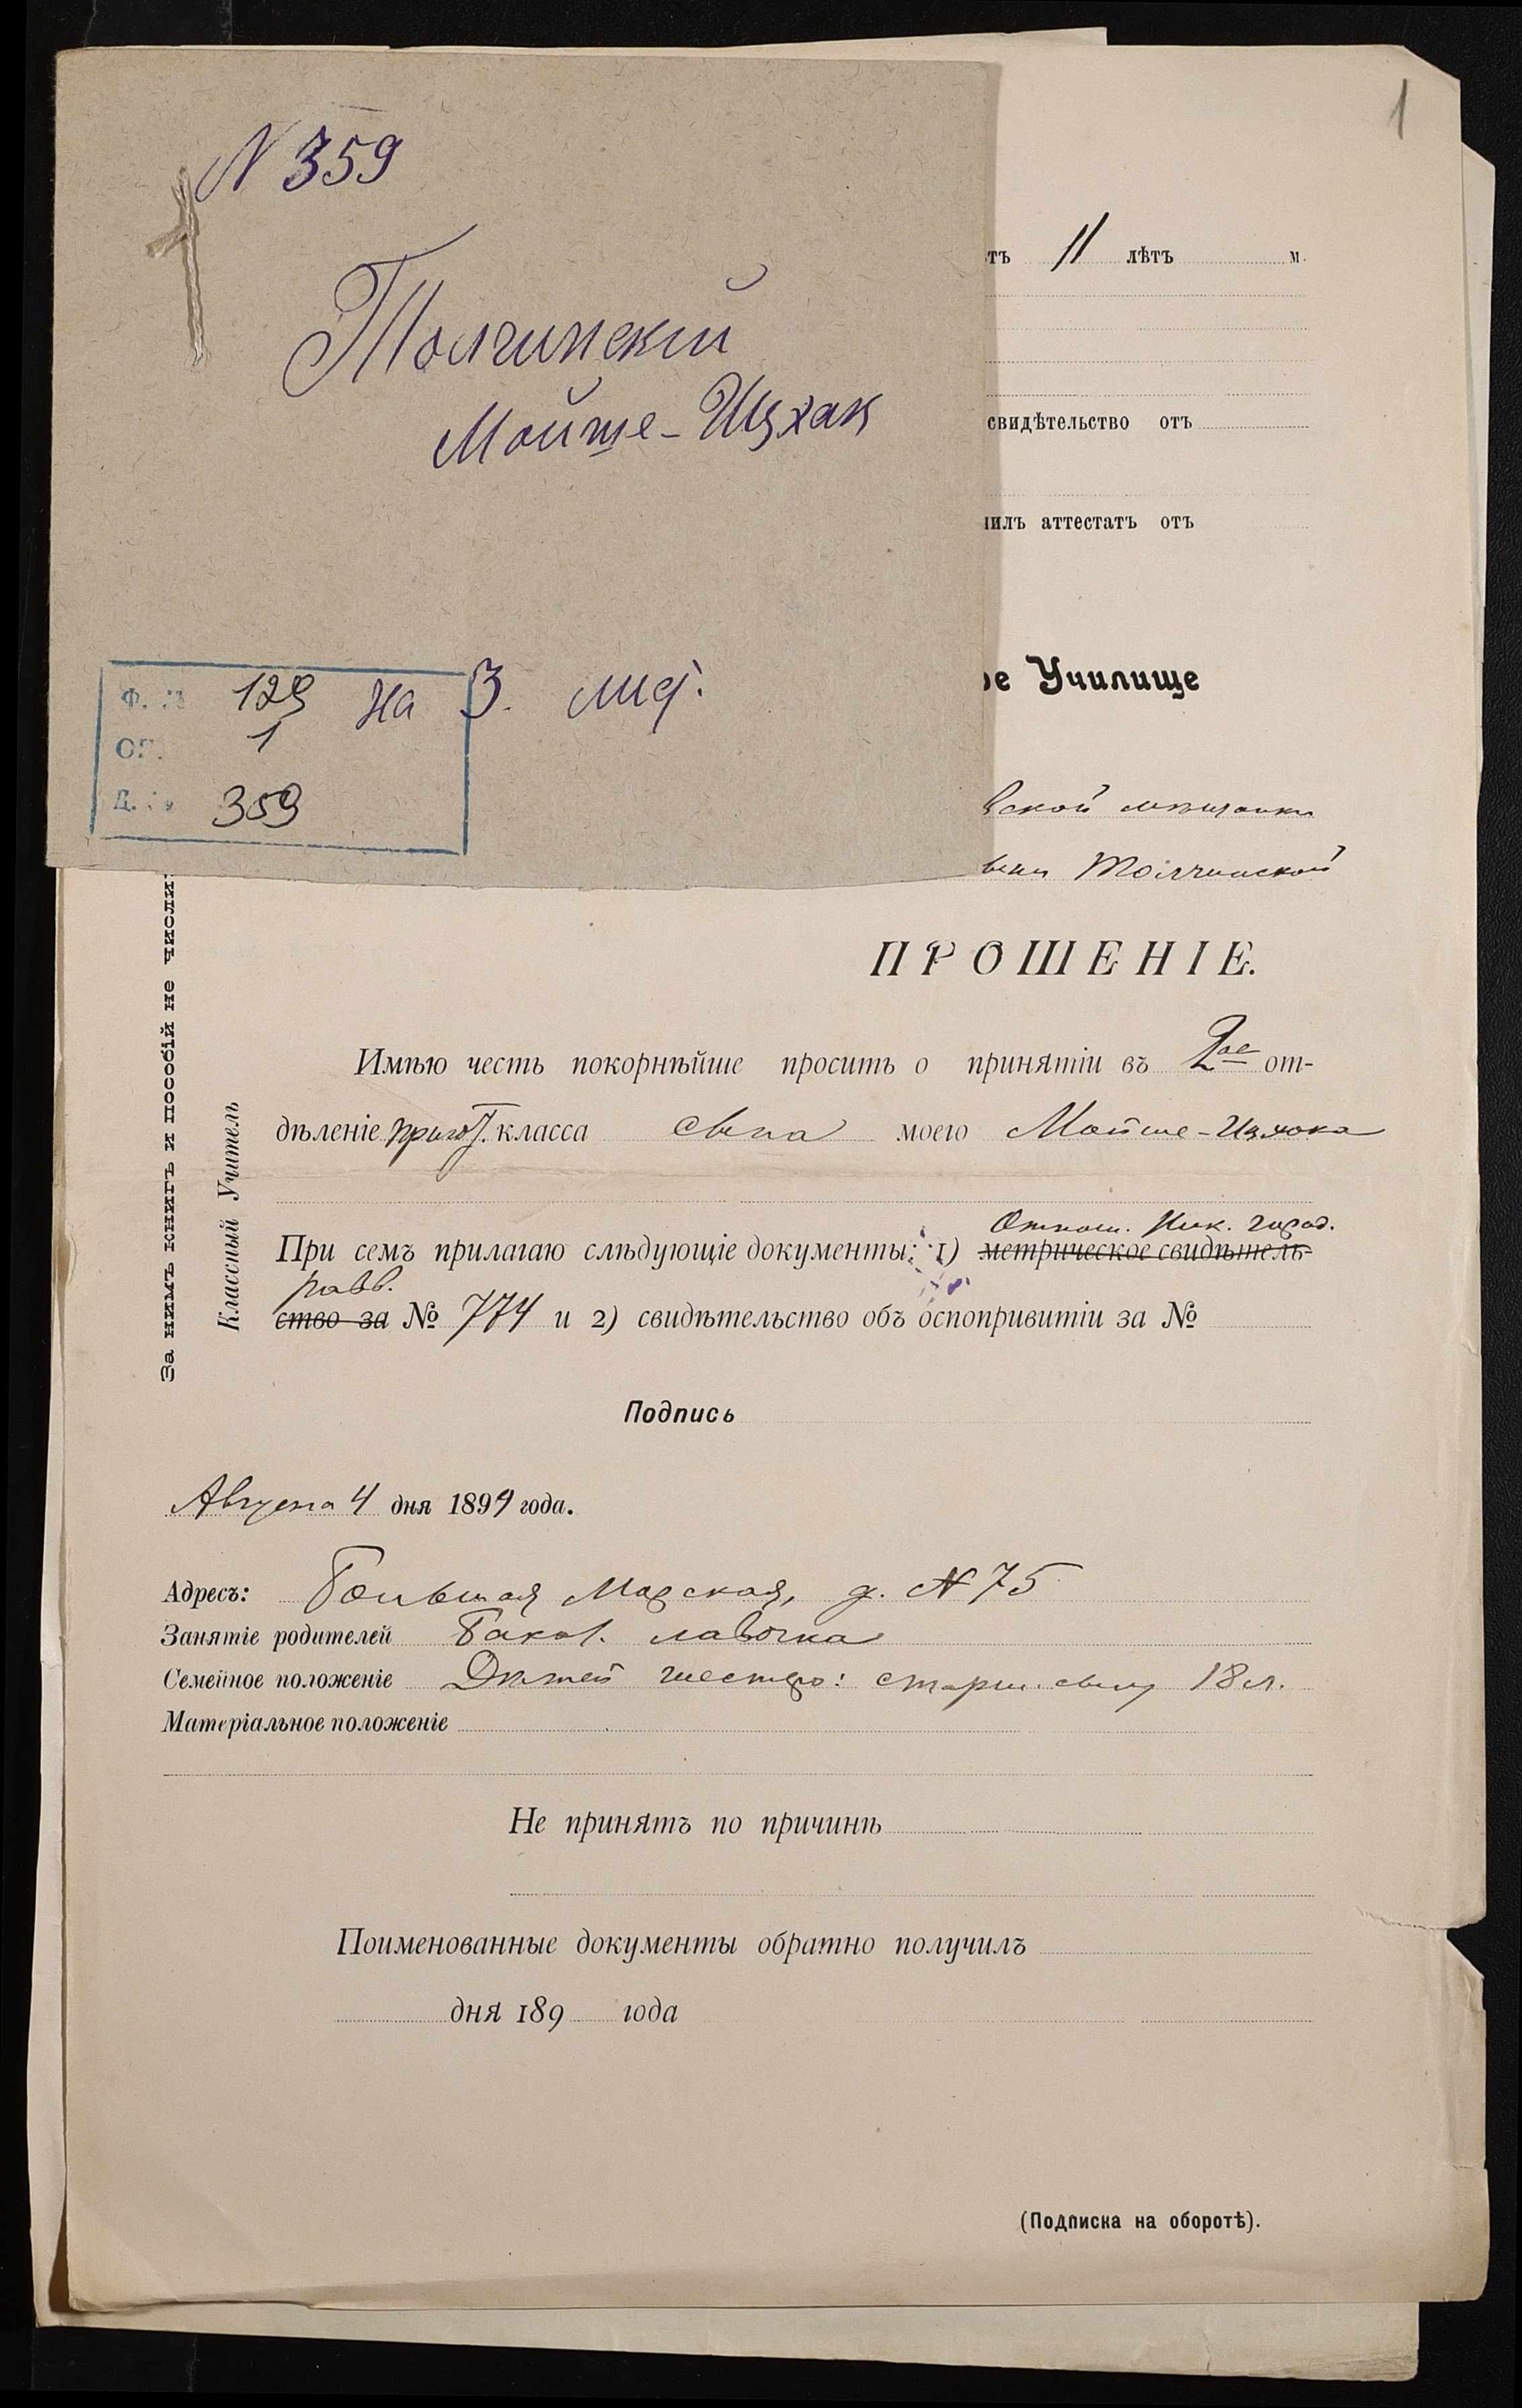 1
N 359
Толчинскій
Мойше-Ицхак
Ф. № 129 на 3. лис.
ОП. 1
Д. № 359
тъ 11 лѣтъ м.
свидѣтельство отъ
илъ аттестатъ отъ
ое Училище
вской мѣщанки
Толчинской
ПРОШЕНІЕ.
Имѣю честь покорнѣйше просить о принятіи въ 2ое от-
дѣленіе пригот. класса сына моего Мойше-Ицхока
Отнош. Ник. город.
При семъ прилагаю слѣдующіе документы: 1) метрическое свидѣтель-
равв.
ство за № 774 и 2) свидѣтельство объ оспопривитіи за №
Подпись
Августа 4 дня 1899 года.
Адресъ: Большая Морская, д. N 75
Занятіе родителей Бакал. лавочка
Семейное положеніе Дѣтей шестеро: старш. сыну 18 л.
Матеріальное положеніе
Не принятъ по причинѣ
Поименованные документы обратно получилъ
дня 189 года
(Подписка на оборотѣ).
За нимъ книгъ и пособій не числи
Классный Учитель